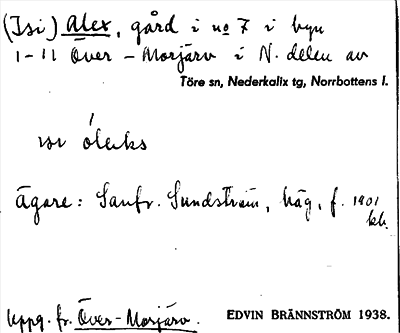 (Isi) Alex, gård i no 7 i byn
1-11 Över-Morjärv i N. delen av
Töre sn, Nederkalix tg, Norrbottens l.
ɪsɪ óleks
Ägare: Sanfr. Sundström, häg, f. 1901
Uppg. fr. Över-Morjärv.
EDVIN BRÄNNSTRÖM 1938.